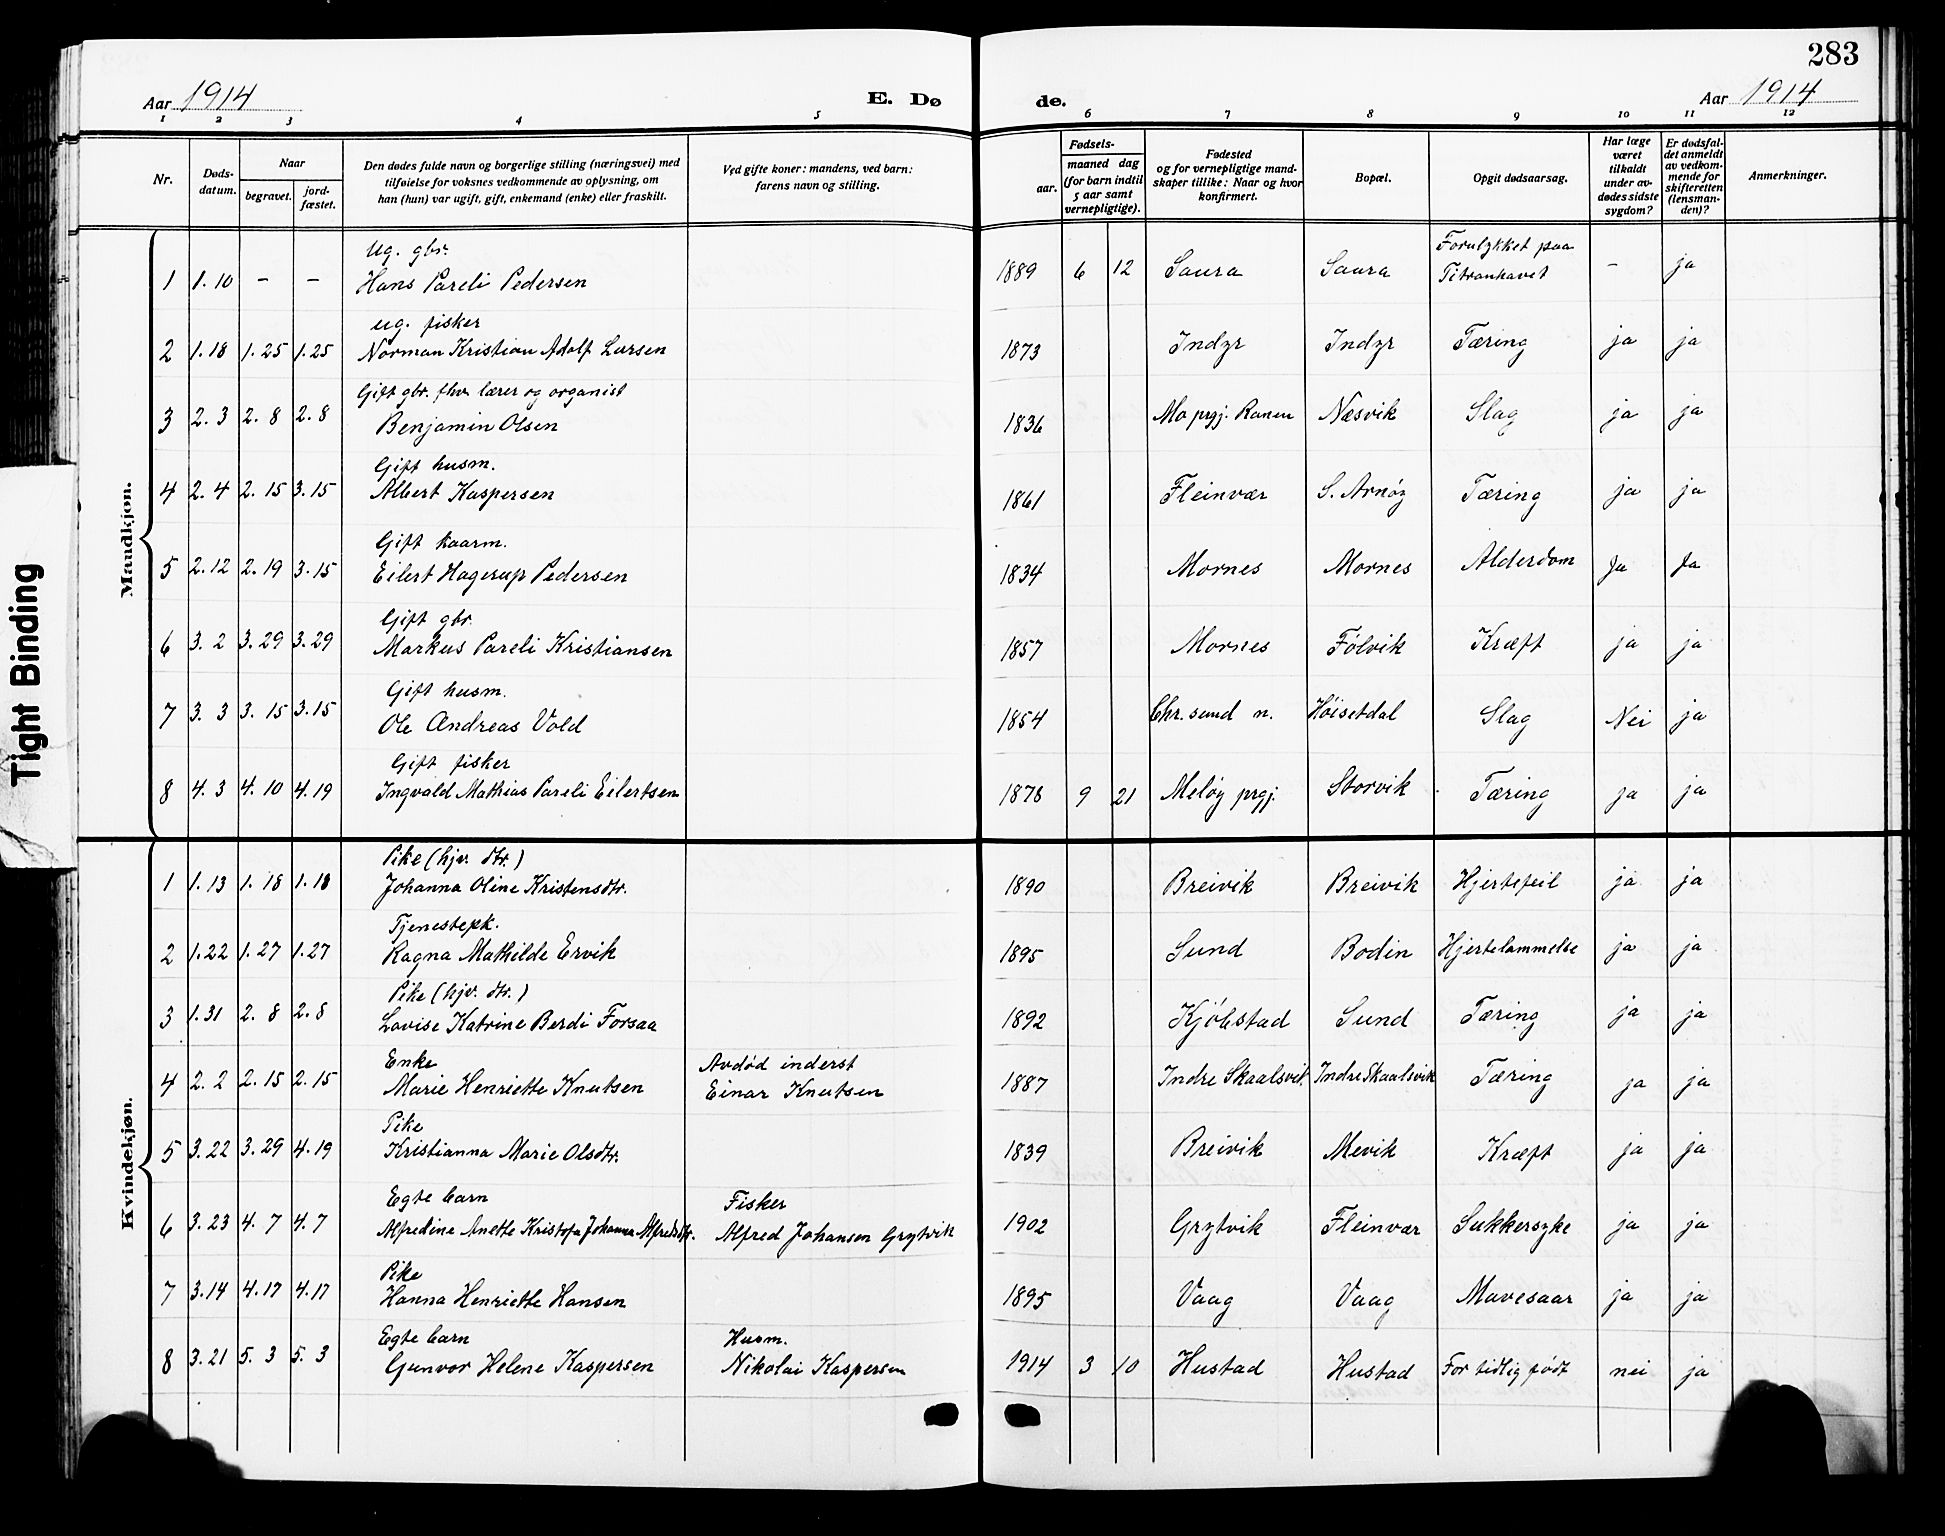 283
Aar 1914 E. Dø de. Aar 1914
1 2 3 4 5 6 7 8 9 10 11 12
Nr. Døds-datum. Naar begravet. jord-fæstet. Den dødes fulde navn og borgerlige stilling (næringsvei) med tilføielse for voksnes vedkommende av oplysning, om han (hun) var ugift, gift, enkemand (enke) eller fraskilt. Ved gifte koner: mandens, ved barn: farens navn og stilling. Fødsels- aar. maaned dag (for barn indtil 5 aar samt vernepligtige). Fødested og for vernepligtige mand-skaper tillike: Naar og hvor konfirmert. Bopæl. Opgit dødsaarsag. Har læge været tilkaldt under av-dødes sidste sygdom? Er dødsfal-det anmeldt av vedkom-mende for skifteretten (lensman-den)? Anmerkninger.
Tight Binding
Mandkjøn.
Ug. gbr. Forulykket paa
1 1.10 - - Hans Pareli Pedersen 1889 6 12 Saura Saura Titranhavet - ja
ug. fisker
2 1.18 1.25 1.25 Norman Kristian Adolf Larsen 1873 Indyr Indyr Tæring ja ja
Gift gbr. fhv. lærer og organist
3 2.3 2.8 2.8 Benjamin Olsen 1836 Mo prgj. Ranen Næsvik Slag ja ja
Gift husm.
4 2.4 2.15 3.15 Albert Kaspersen 1861 Fleinvær S. Arnøy Tæring ja ja
Gift kaarm.
5 2.12 2.19 3.15 Eilert Hagerup Pedersen 1834 Mornes Mornes Alderdom Ja Ja
Gift gbr.
6 3.2 3.29 3.29 Markus Pareli Kristiansen 1857 Mornes Følvik Kræft ja ja
Gift husm.
7 3.3 3.15 3.15 Ole Andreas Vold 1854 Chr.sund n. Høisetdal Slag Nei ja
Gift fisker
8 4.3 4.10 4.19 Ingvald Mathias Pareli Eilertsen 1878 9 21 Meløy prgj. Storvik Tæring ja ja
Kvindekjøn.
Pike (hjv. dtr.)
1 1.13 1.18 1.18 Johanna Oline Kristensdtr. 1890 Breivik Breivik Hjertefeil ja ja
Tjenestepk.
2 1.22 1.27 1.27 Ragna Mathilde Ervik 1895 Sund Bodin Hjertelammelse ja ja
Pike (hjv. dtr.)
3 1.31 2.8 2.8 Lovise Katrine Berdi Forsaa 1892 Kjøbstad Sund Tæring ja ja
Enke Avdød inderst
4 2.2 2.15 2.15 Marie Henriette Knutsen Einar Knutsen 1887 Indre Skaalsvik Indre Skaalsvik Tæring ja ja
Pike
5 3.22 3.29 4.19 Kristianna Marie Olsdtr. 1839 Breivik Mevik Kræft ja ja
Egte barn Fisker
6 3.23 4.7 4.7 Alfredine Anette Johanna Alfredsdtr. Alfred Johansen Grytvik 1902 Grytvik Fleinvær Sukkersyke ja ja
Pike
7 3.14 4.17 4.17 Hanna Henriette Hansen 1895 Vaag Vaag Mavesaar ja ja
Egte barn Husm.
8 3.21 5.3 5.3 Gunvor Helene Kaspersen Nikolai Kaspersen 1914 3 10 Hustad Hustad For tidlig født nei ja